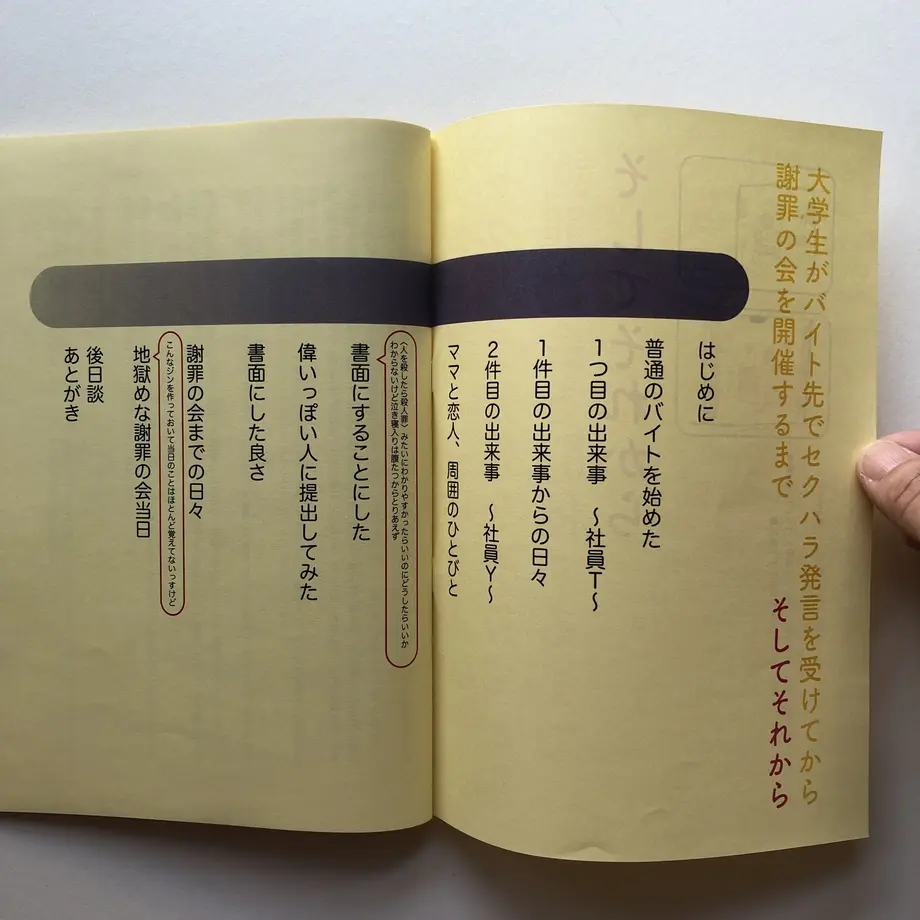 大学生がバイト先でセクハラ発言を受けてから
謝罪の会を開催するまで そしてそれから
はじめに
普通のバイトを始めた
1つ目の出来事 〜社員T〜
1件目の出来事からの日々
2件目の出来事 〜社員Y〜
ママと恋人、周囲のひとびと
(人を殺したら殺人罪)みたいにわかりやすかったらいいのにどうしたらいいか
わからないけど泣き寝入りは腹たつからとりあえず
書面にすることにした
偉いっぽい人に提出してみた
書面にした良さ
謝罪の会までの日々
こんなジンを作っておいて当日のことはほとんど覚えてないっすけど
地獄めな謝罪の会当日
後日談
あとがき